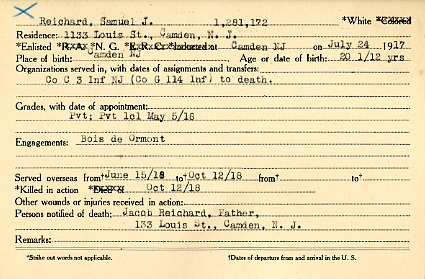 Reichard, Samuel J. 1,281,172 *White *Colored
Residence: 1133 Louis St., Camden, N. J.
*Enlisted *R. A. *N. G. *E. R. C. *Inducted at Camden NJ on July 24 1917
Place of birth: Camden NJ Age or date of birth: 20 1/12 yrs
Organizations served in, with dates of assignments and transfers:
Co C 3 Inf NJ (Co G 114 Inf) to death.
Grades, with date of appointment:
Pvt; Pvt 1cl May 5/18
Engagements: Bois de Ormont
Served overseas from† June 15/18 to† Oct 12/18 from† to†
*Killed in action Oct 12/18
Other wounds or injuries received in action:
Persons notified of death: Jacob Reichard, Father,
133 Louis St., Camden, N. J.
Remarks:
*Strike out words not applicable. †Dates of departure from and arrival in the U. S.